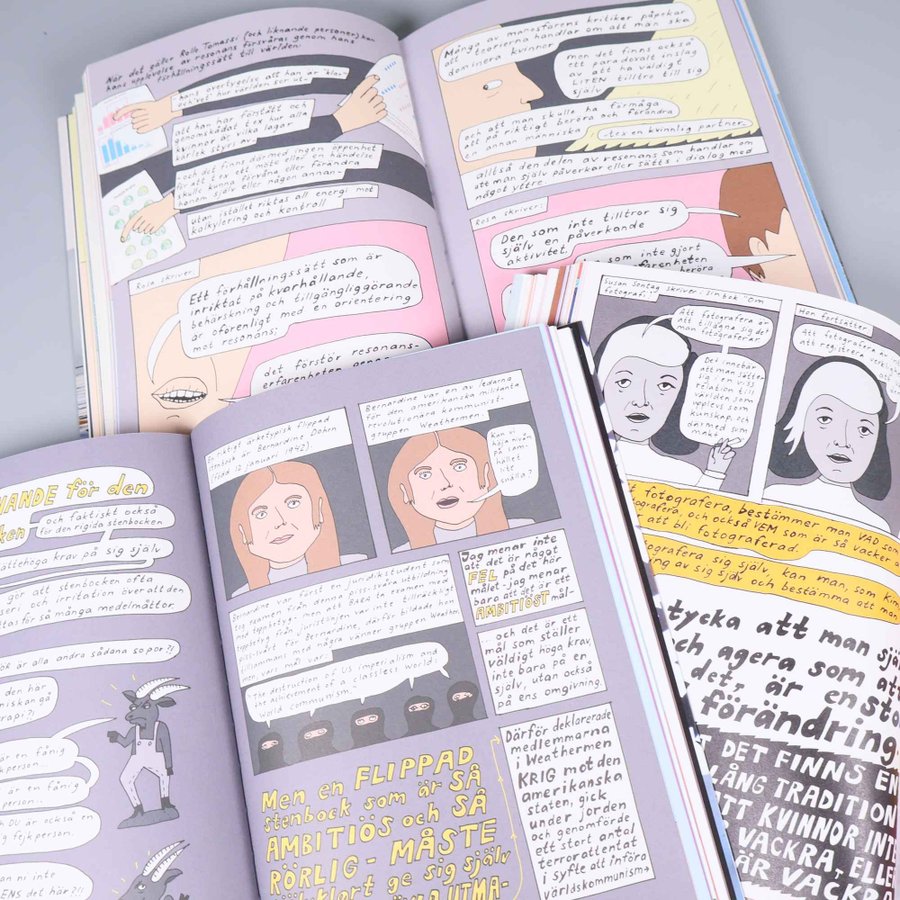 När det gäller Rollo Tomassi (och liknande personer) kan
hans upplevelse av resonans försvåras genom hans
förhållningssätt till världen:
hans övertygelse att han är "klar"
och "vet" hur världen ser ut-
att han har förstått och
genomskådat hur alla
kvinnor är, vilka lagar
kärlek styrs av
och det finns därmed ingen öppenhet
för att ex ett möte eller en händelse
skulle kunna förvåna eller förändra
honom själv eller någon annan-
utan istället riktas all energi mot
kalkylering och kontroll
Rosa skriver:
Ett förhållningssätt som är
inriktat på kvarhållande,
behärskning och tillgängliggörande
är oförenligt med en orientering
mot resonans;
det förstör resonans-
erfarenheten genom
Många av manosfärens kritiker påpekar
att teorierna handlar om att män ska
dominera kvinnor
men det finns också
ett paradoxalt inslag
av att ha väldigt
LITEN tilltro till sig
själv
och att man skulle ha förmåga
att på riktigt beröra och förändra
en annan människa
tex en kvinnlig partner
alltså den delen av resonans som handlar om
att man själv påverkar eller sätts i dialog med
något yttre.
Rosa skriver:
Den som inte tilltror sig
själv en påverkande
aktivitet,
som inte gjort
erfarenheten
beröra
Susan Sontag skriver i sin bok "Om
fotografi":
Att fotografera är
att tillägna sig det
man fotograferar
Det innebär
att man sätter
sig i en viss
relation till
världen som
upplevs som
kunskap och
därmed som
makt
Hon fortsätter
Att fotografera
att registrera
fotografera, bestämmer man VAD som
fotografera, och också VEM som är så vacker
att bli fotograferad.
fotografera sig själv, kan man, som Kim
av sig själv och bestämma att man
tycka att man själ
och agera som att
det, är en stor
förändring
DET FINNS EN
LÅNG TRADITION
ATT KVINNOR INTE
VACKRA, ELLER
ÄR VACKRA
NANDE för den
och faktiskt också
för den rigida stenbocken
jättehöga krav på sig själv
gör att stenbocken ofta
och irritation över att den
för så många medelmåttor.
är alla andra sådana sopor?!
den här
en fånig
person...
är en fånig
person...
och DU är också en
fejkperson.
ENS det här?!!
En riktigt arketypisk flippad
stenbock är Bernardine Dohrn
(född 12 januari 1942)
Bernardine var en av ledarna
för den amerikanska militanta
revolutionära kommunist-
gruppen Weathermen.
Kan vi
höja nivån
på sam-
hället lite
snälla?
Bernardine var först en juridikstudent som
men att bara ha utbildning
toppjobb i framtiden inte tillräckligt
för Bernardine, där för bildade hon
tillsammans med några vänner gruppen Weather-
men, vars mål var:
The destruction of US imperialism and
the achievement of a classless world:
world communism.
Jag menar inte
att det är något
FEL på det här
målet - jag menar
bara att det är ett
AMBITIÖST mål-
och det är ett
mål som ställer
väldigt höga krav
inte bara på en
själv, utan också
på ens omgivning.
Därför deklarerade
medlemmarna
i Weathermen
KRIG mot den
amerikanska
staten, gick
under jorden
och genomförde
ett stort antal
terrorattentat
i syfte att införa
världskommunism→
Men en FLIPPAD
stenbock som är SÅ
AMBITIÖS och SÅ
RÖRLIG - MÅSTE
självklart ge sig själv
UTMA-